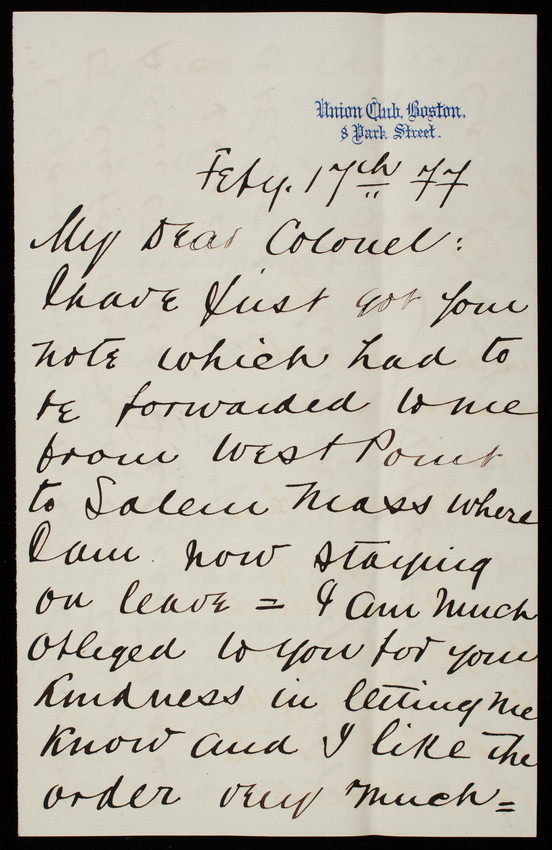 Union Club, Boston.
8 Park Street.
Feby. 17th 77
My Dear Colonel:
I have just got your
note which had to
be forwarded to me
from West Point
to Salem Mass where
I am now staying
on leave = I am much
obleged to you for your
kindness in letting me
know and I like the
order very much =